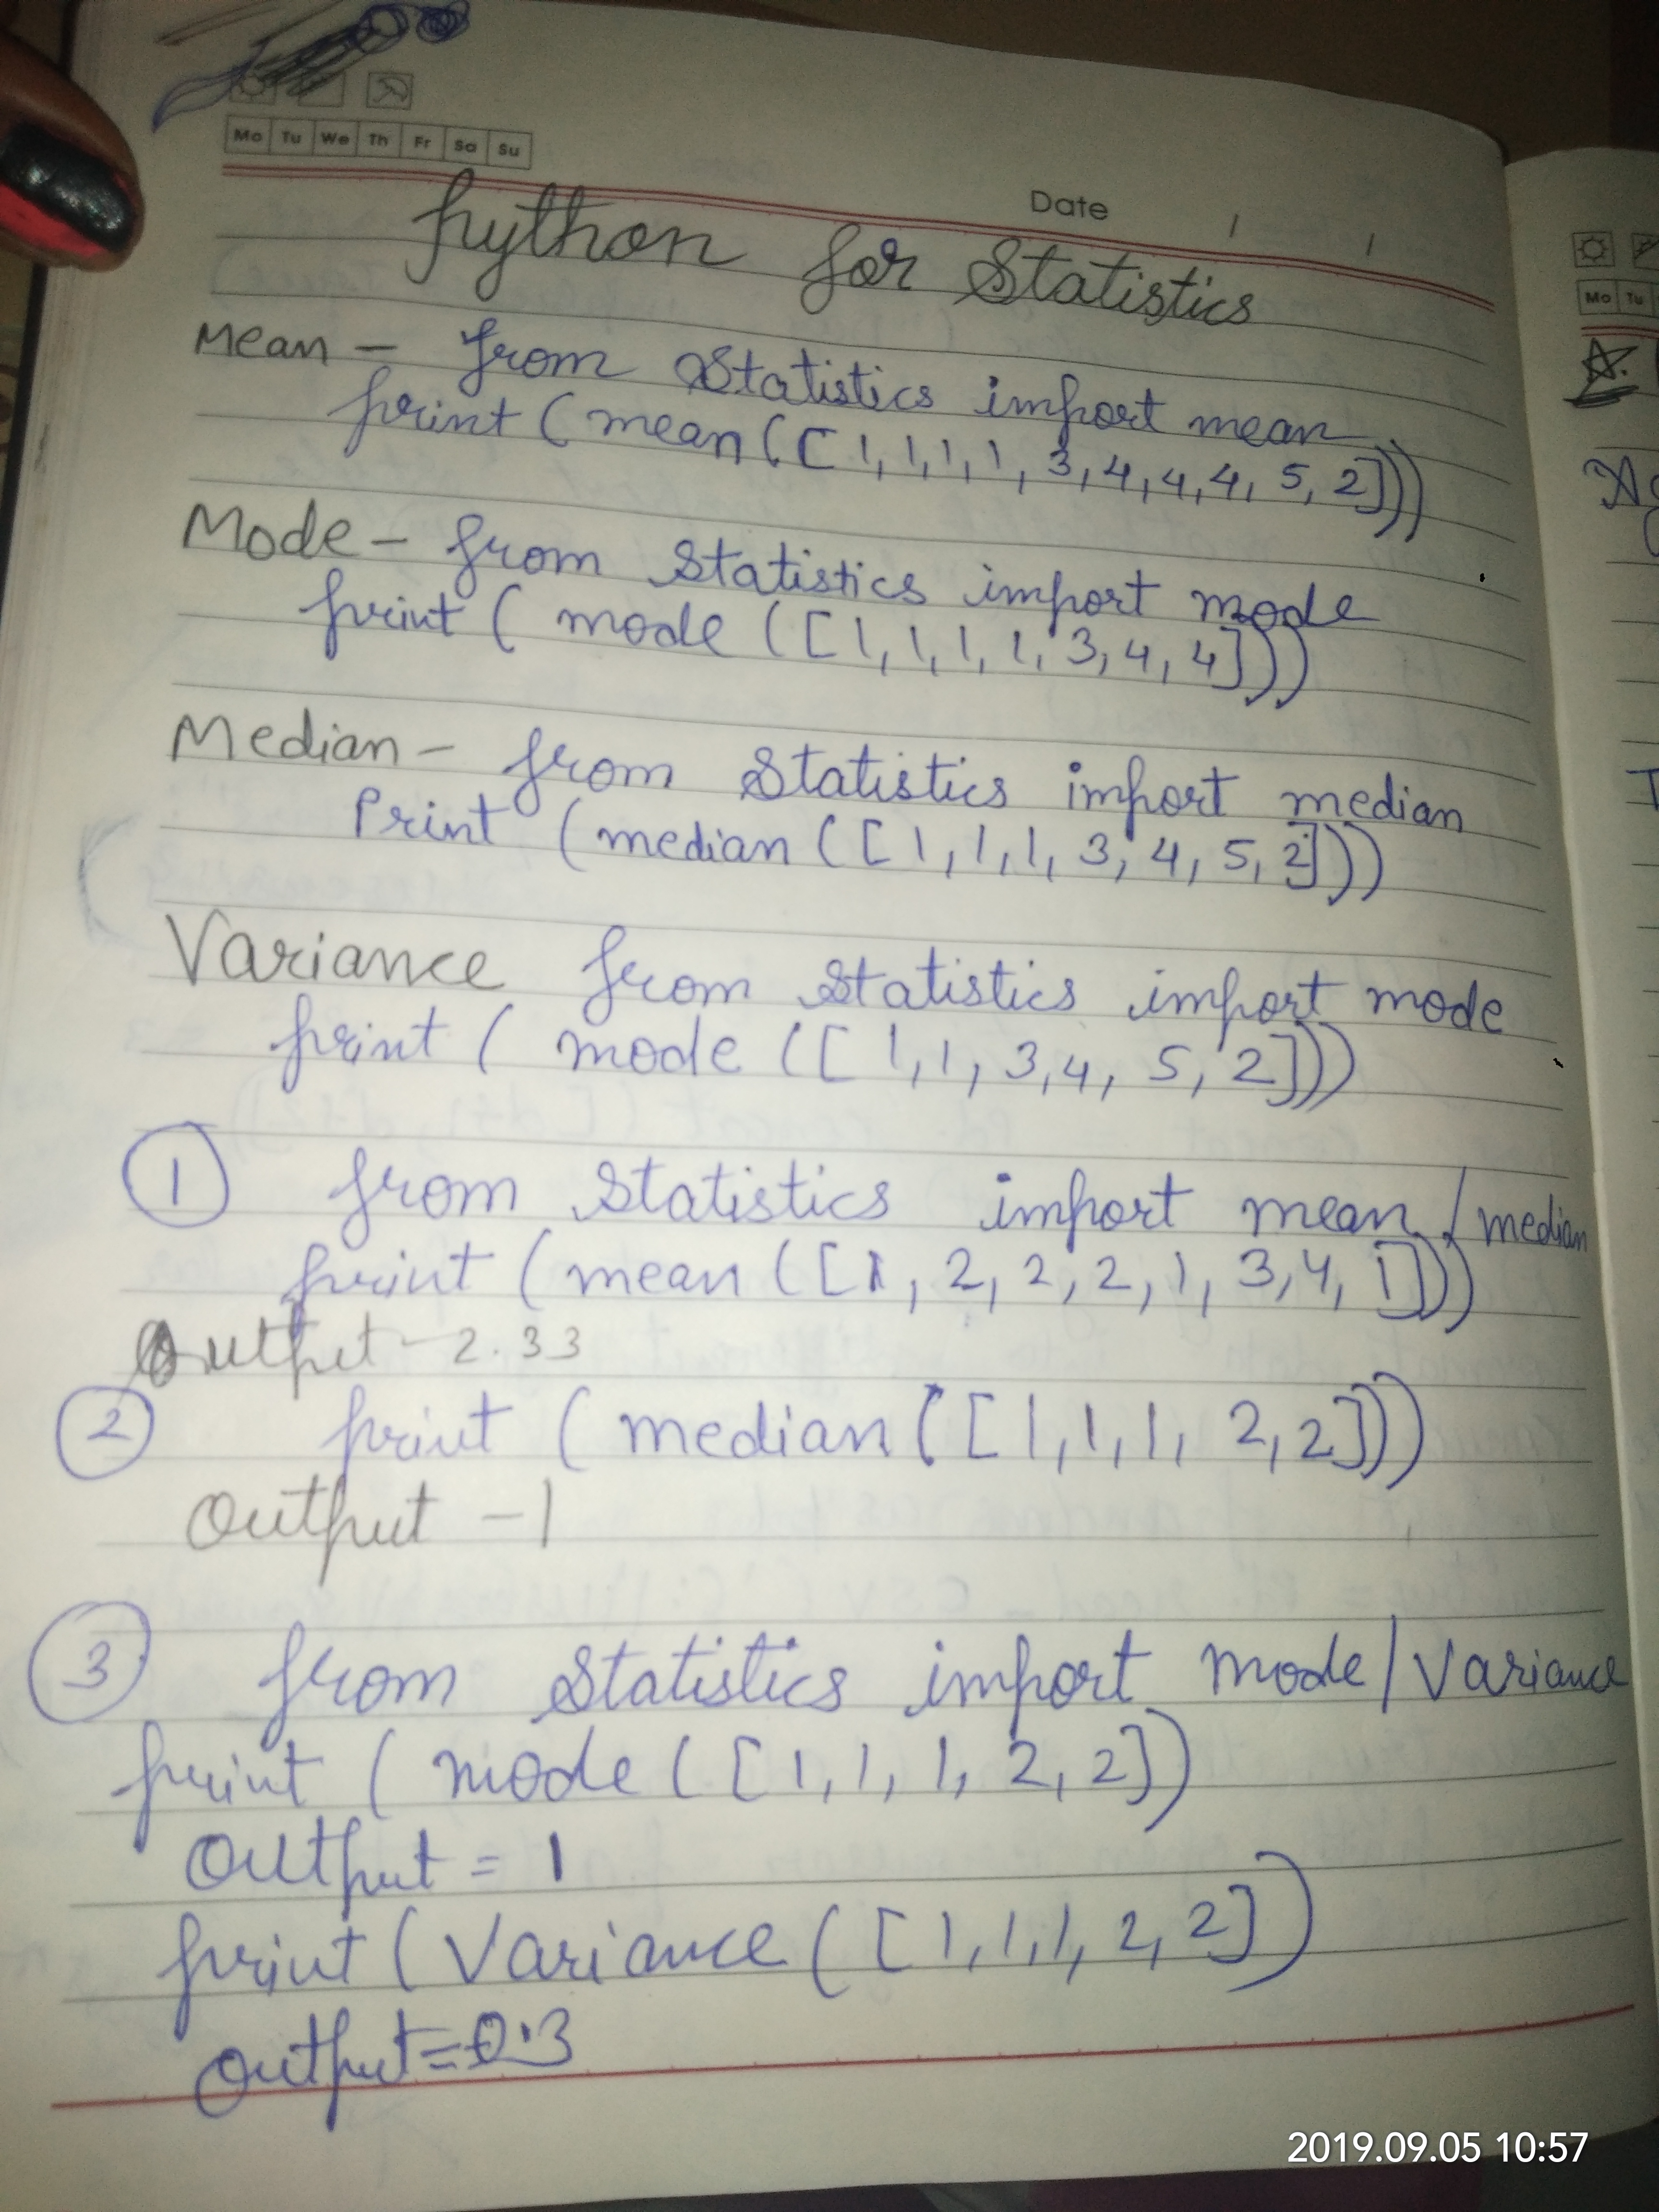 Mo Tu We Th Fr Sa Su
Date / /
Python for Statistics
Mean - from Statistics import mean
print (mean ([1,1,1,1,3,4,4,4,5,2]))
Mode - from Statistics import mode
print ( mode ([1,1,1,1,3,4,4]))
Median - from Statistics import median
Print (median ([1,1,1,3,4,5,2]))
Variance from statistics import mode
print ( mode ([1,1,3,4,5,2]))
1 from statistics import mean / median
print (mean ([1,2,2,2,1,3,4,1]))
Output - 2.33
2 print (median ([1,1,1,2,2]))
Output - 1
3 from Statistics import mode/Variance
print ( mode ([1,1,1,2,2])
Output = 1
print (Variance ([1,1,1,2,2])
Output=0.3
Mo Tu
2019.09.05 10:57